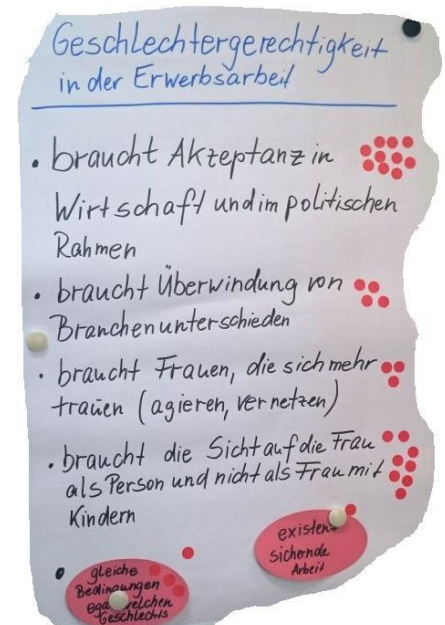 Geschlechtergerechtigkeit
in der Erwerbsarbeit
• braucht Akzeptanz in
Wirtschaft und im politischen
Rahmen
• braucht Überwindung von
Branchenunterschieden
• braucht Frauen, die sich mehr
trauen (agieren, vernetzen)
• braucht die Sicht auf die Frau
als Person und nicht als Frau mit
Kindern
existenz
sichernde
Arbeit
• gleiche
Bedingungen
egal welchen
Geschlechts